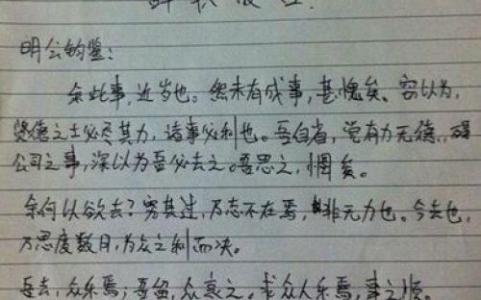 辞职报告:
明公钧鉴:
余此事,近岁也。然未有成事,甚愧矣。窃以为,
贤德之士必尽其力,诸事必利也。吾自省,觉有力无德,
公司之事,深以为吾必去之。吾思之,惆矣。
余何以欲去?究其过,乃志不在焉,非无力也。今去也,
乃思度数月,为众之利而决。
吾去,众乐焉;吾留,众哀之。求众人乐焉,事之顺